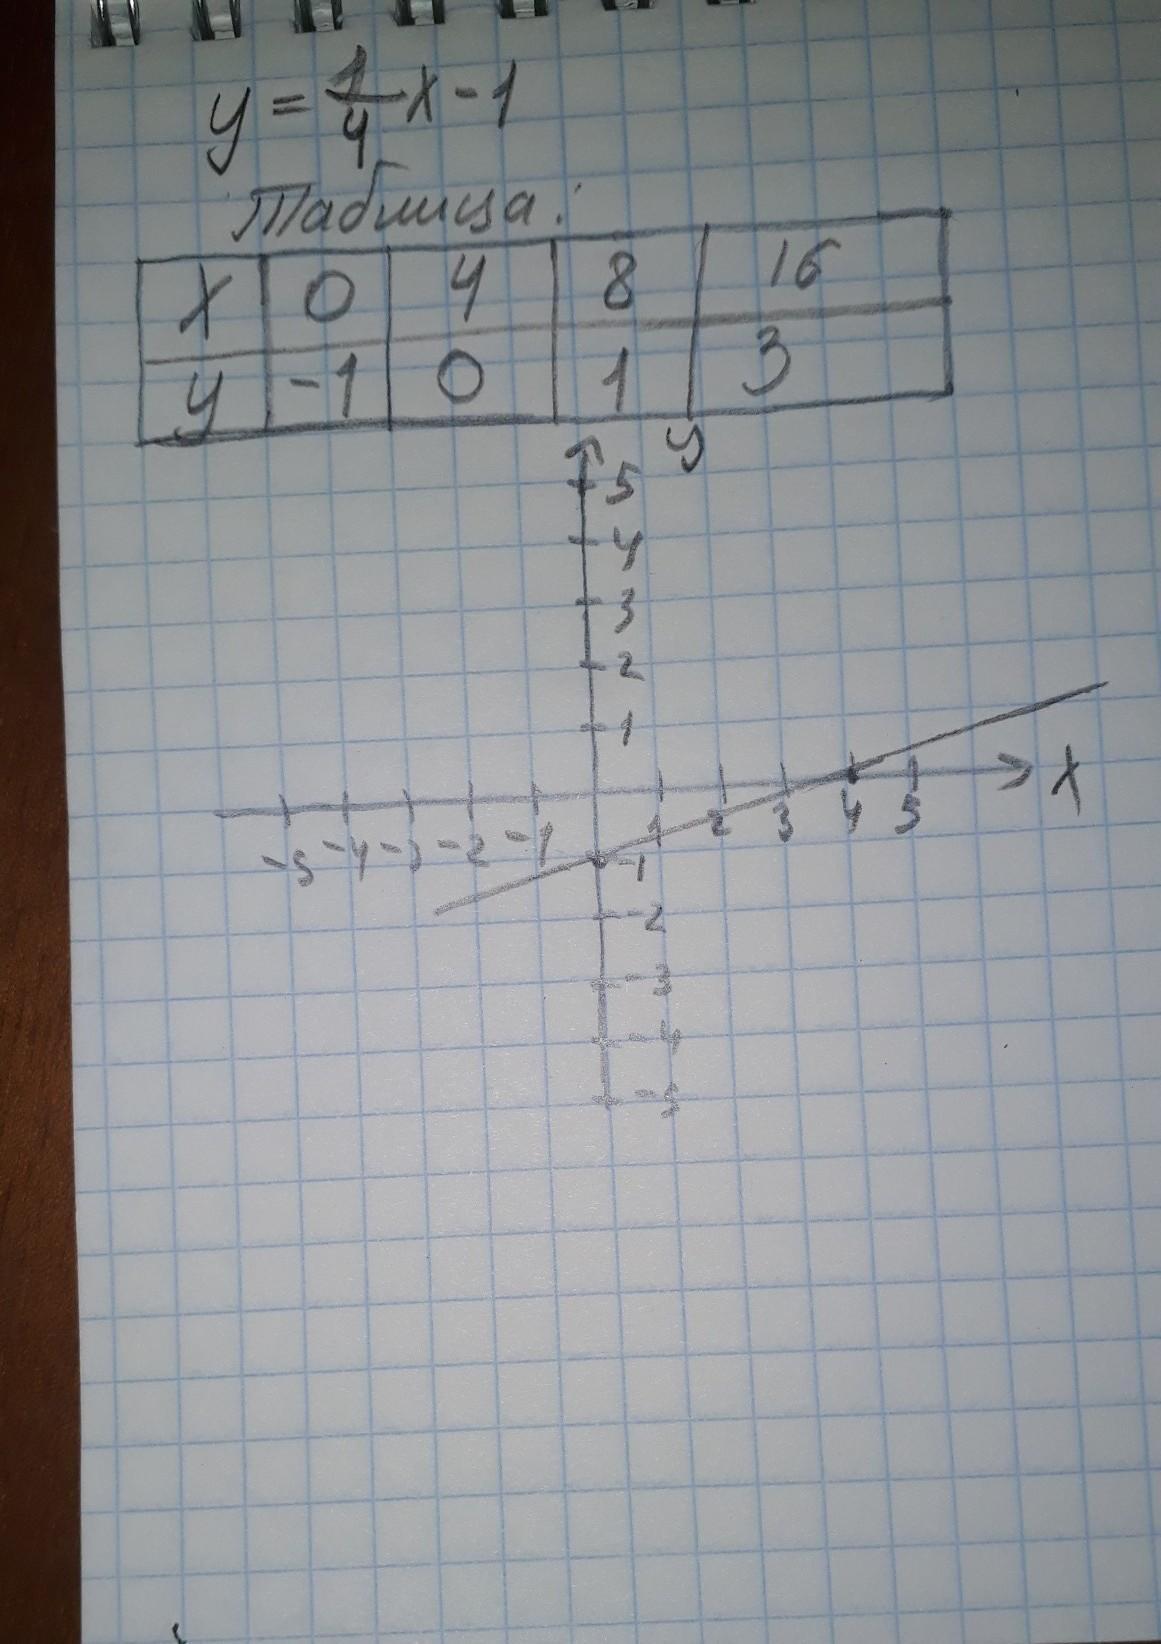 y = 1/4 x - 1
Таблица:
x 0 4 8 16
y -1 0 1 3
y
5
4
3
2
1
x
-5 -4 -3 -2 -1 1 2 3 4 5
-1
-2
-3
-4
-5